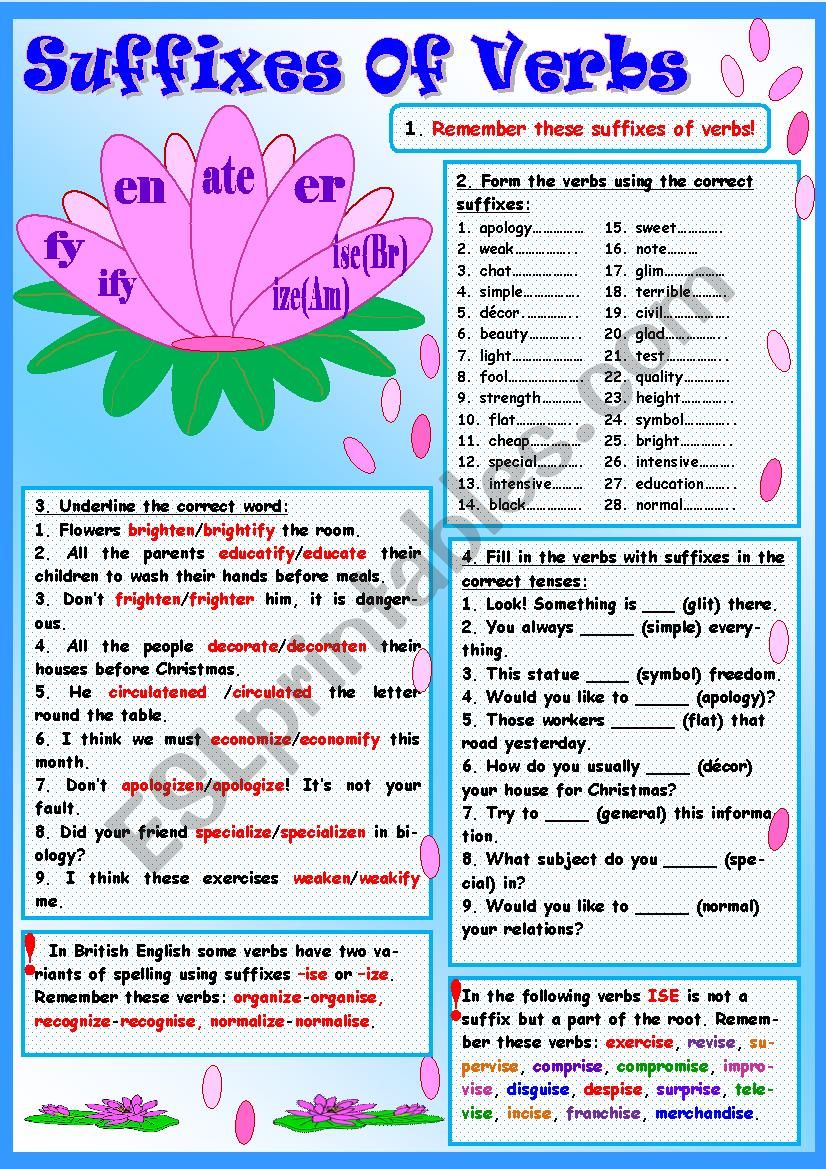 Suffixes Of Verbs
1. Remember these suffixes of verbs!
fy
ify
en
ate
er
ise(Br)
ize(Am)
2. Form the verbs using the correct
suffixes:
1. apology……………
2. weak……………..
3. chat……………….
4. simple…………….
5. décor…………..
6. beauty…………..
7. light…………………
8. fool………………….
9. strength…………
10. flat……………..
11. cheap……………
12. special………….
13. intensive………
14. black…………….
15. sweet………….
16. note………
17. glim………………
18. terrible……….
19. civil……………….
20. glad……………..
21. test……………..
22. quality………….
23. height…………..
24. symbol…………..
25. bright…………..
26. intensive……….
27. education……..
28. normal…………..
3. Underline the correct word:
1. Flowers brighten/brightify the room.
2. All the parents educatify/educate their
children to wash their hands before meals.
3. Don't frighten/frighter him, it is danger-
ous.
4. All the people decorate/decoraten their
houses before Christmas.
5. He circulatened /circulated the letter
round the table.
6. I think we must economize/economify this
month.
7. Don't apologizen/apologize! It's not your
fault.
8. Did your friend specialize/specializen in bi-
ology?
9. I think these exercises weaken/weakify
me.
4. Fill in the verbs with suffixes in the
correct tenses:
1. Look! Something is ___ (glit) there.
2. You always _____ (simple) every-
thing.
3. This statue ____ (symbol) freedom.
4. Would you like to _____ (apology)?
5. Those workers ______ (flat) that
road yesterday.
6. How do you usually ____ (décor)
your house for Christmas?
7. Try to ____ (general) this informa
tion.
8. What subject do you _____ (spe-
cial) in?
9. Would you like to _____ (normal)
your relations?
! In British English some verbs have two va-
riants of spelling using suffixes –ise or –ize.
Remember these verbs: organize-organise,
recognize-recognise, normalize-normalise.
! In the following verbs ISE is not a
suffix but a part of the root. Remem-
ber these verbs: exercise, revise, su-
pervise, comprise, compromise, impro-
vise, disguise, despise, surprise, tele-
vise, incise, franchise, merchandise.
ESLprintables.com